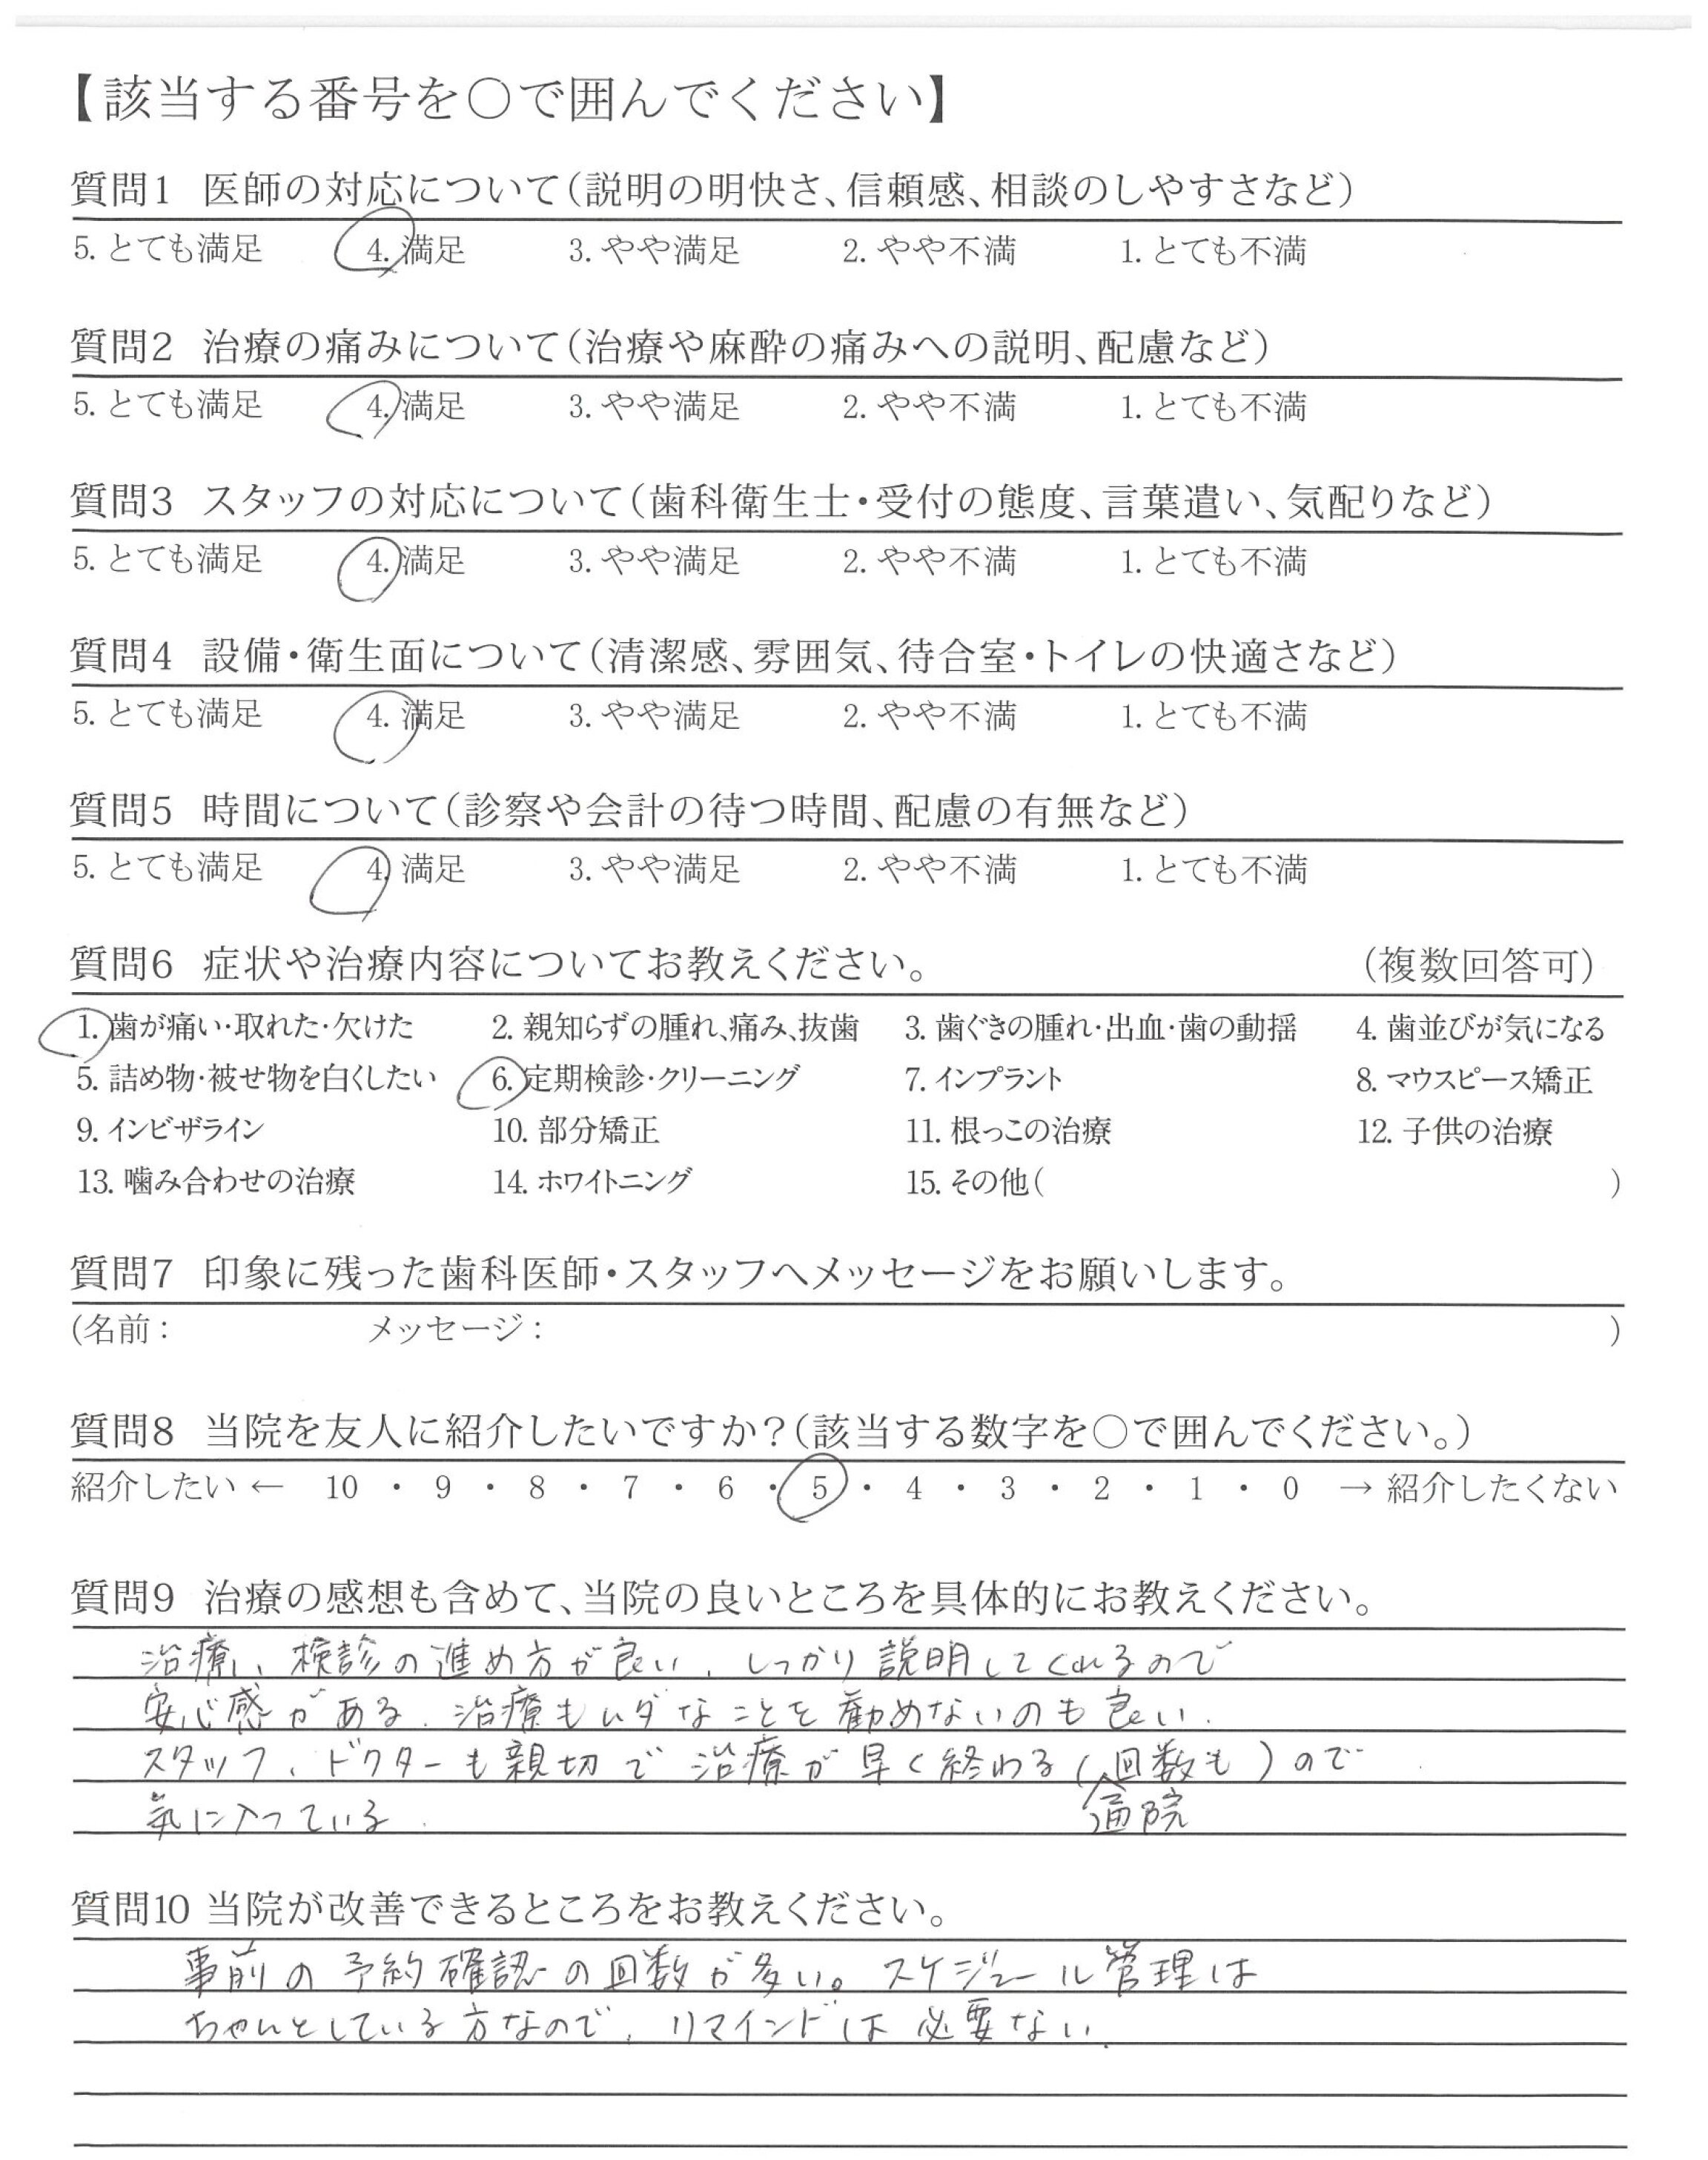 【該当する番号を○で囲んでください】
質問1 医師の対応について(説明の明快さ、信頼感、相談のしやすさなど)
5. とても満足 4. 満足 3. やや満足 2. やや不満 1. とても不満
質問2 治療の痛みについて(治療や麻酔の痛みへの説明、配慮など)
5. とても満足 4. 満足 3. やや満足 2. やや不満 1. とても不満
質問3 スタッフの対応について(歯科衛生士・受付の態度、言葉遣い、気配りなど)
5. とても満足 4. 満足 3. やや満足 2. やや不満 1. とても不満
質問4 設備・衛生面について(清潔感、雰囲気、待合室・トイレの快適さなど)
5. とても満足 4. 満足 3. やや満足 2. やや不満 1. とても不満
質問5 時間について(診察や会計の待つ時間、配慮の有無など)
5. とても満足 4. 満足 3. やや満足 2. やや不満 1. とても不満
質問6 症状や治療内容についてお教えください。 (複数回答可)
1. 歯が痛い・取れた・欠けた 2. 親知らずの腫れ、痛み、抜歯 3. 歯ぐきの腫れ・出血・歯の動揺 4. 歯並びが気になる
5. 詰め物・被せ物を白くしたい 6. 定期検診・クリーニング 7. インプラント 8. マウスピース矯正
9. インビザライン 10. 部分矯正 11. 根っこの治療 12. 子供の治療
13. 噛み合わせの治療 14. ホワイトニング 15. その他( )
質問7 印象に残った歯科医師・スタッフへメッセージをお願いします。
(名前: メッセージ: )
質問8 当院を友人に紹介したいですか?(該当する数字を○で囲んでください。)
紹介したい ← 10 ・ 9 ・ 8 ・ 7 ・ 6 ・ 5 ・ 4 ・ 3 ・ 2 ・ 1 ・ 0 → 紹介したくない
質問9 治療の感想も含めて、当院の良いところを具体的にお教えください。
治療、検診の進め方が良い、しっかり説明してくれるので
安心感がある。治療もムダなことを勧めないのも良い.
スタッフ、ドクターも親切で治療が早く終わる(回数も)ので
気に入っている. 通院
質問10 当院が改善できるところをお教えください。
事前の予約確認の回数が多い。スケジュール管理は
ちゃんとしている方なので、リマインドは必要ない.